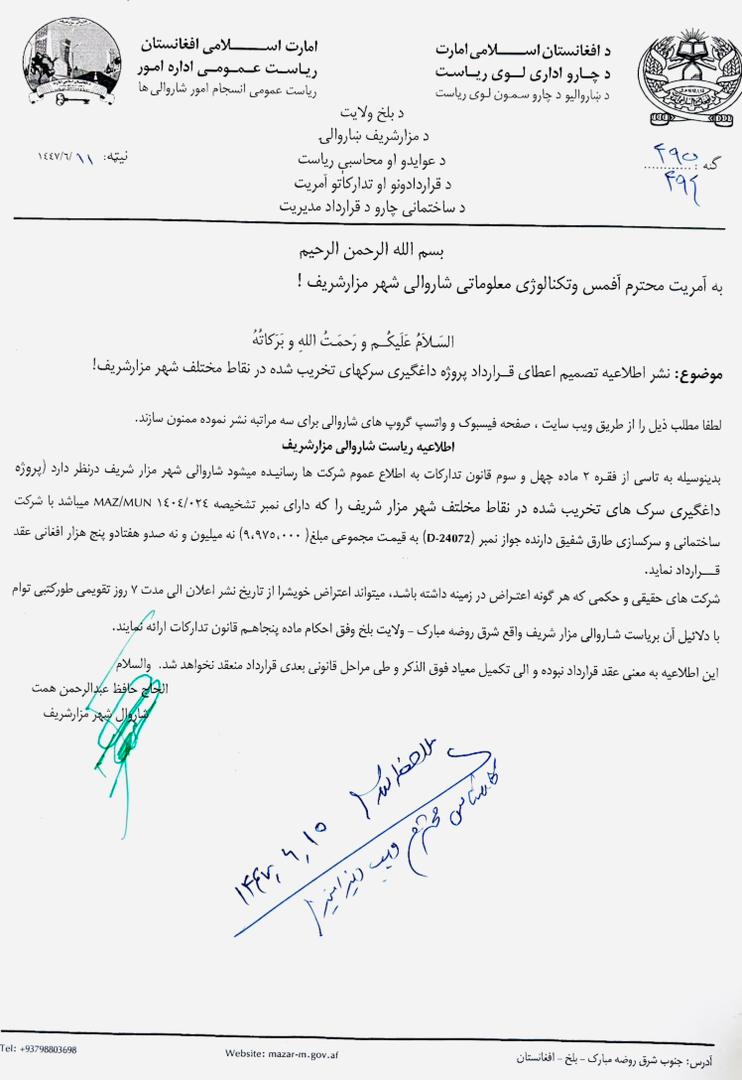 د افغانستان اســـــلامی امارت
د چارو اداری لوی ریاست
د ښاروالیو د چارو سمون لوی ریاست
امارت اســـــلامی افغانستان
ریاست عمـــومی اداره امور
ریاست عمومی انسجام امور شاروالی ها
د بلخ ولایت
د مزارشریف ښاروالۍ
د عوایدو او محاسبې ریاست
د قراردادونو او تدارکاتو آمریت
د ساختمانی چارو د قرارداد مدیریت
ګڼه : ۴۹۵
۴۹۴
نیټه: ۱۱ /۱٤٤٧/٦
بسم الله الرحمن الرحیم
به آمریت محترم آفمس وتکنالوژی معلوماتی شاروالی شهر مزارشریف !
السَـلاَمُ عَلَیکُـم و رَحمَـتُ اللهِ و بَرَکاتُهُ
موضوع: نشر اطلاعیه تصمیم اعطای قــرارداد پروژه داغگیری سرکهای تخریب شده در نقاط مختلف شهر مزارشریف!
لطفا مطلب ذیل را از طریق ویب سایت ، صفحه فیسبوک و واتسپ گروپ های شاروالی برای سه مراتبه نشر نموده ممنون سازند.
اطلاعیه ریاست شاروالی مزارشریف
بدینوسیله به تاسی از فقره ۲ ماده چهل و سوم قانون تدارکات به اطلاع عموم شرکت ها رسانیده میشود شاروالی شهر مزار شریف درنظر دارد (پروژه
داغگیری سرک های تخریب شده در نقاط مخلتف شهر مزار شریف را که دارای نمبر تشخیصه MAZ/MUN ١٤٠٤/٠٢٤ میباشد با شرکت
ساختمانی و سرکسازی طارق شفیق دارنده جواز نمبر (D-24072) به قیمت مجموعی مبلغ( ۹،۹۷۵،۰۰۰) نه میلیون و نه صدو هفتادو پنج هزار افغانی عقد
قـــرارداد نماید.
شرکت های حقیقی و حکمی که هر گونه اعتـراض در زمینه داشته باشـد، میتواند اعتراض خویشرا از تاریخ نشر اعلان الی مدت ۷ روز تقویمی طورکتبی توام
با دلائیل آن بریاست شـاروالی مزار شریف واقع شرق روضه مبارک – ولایت بلخ وفق احکام ماده پنجاهـم قانون تدارکات ارائه نمایند.
این اطلاعیه به معنی عقد قرارداد نبوده و الی تکمیل معیاد فوق الذکر و طی مراحل قانونی بعدی قرارداد منعقد نخواهد شد. والسلام
الحاج حافظ عبدالرحمن همت
شاروال شهر مزارشریف
ملاحظه شد
۱۴۴۷،۶،۱۵
محترم ویب
آدرس: جنوب شرق روضه مبارک – بلخ – افغانستان
Website: mazar-m.gov.af
Tel: +93798803698